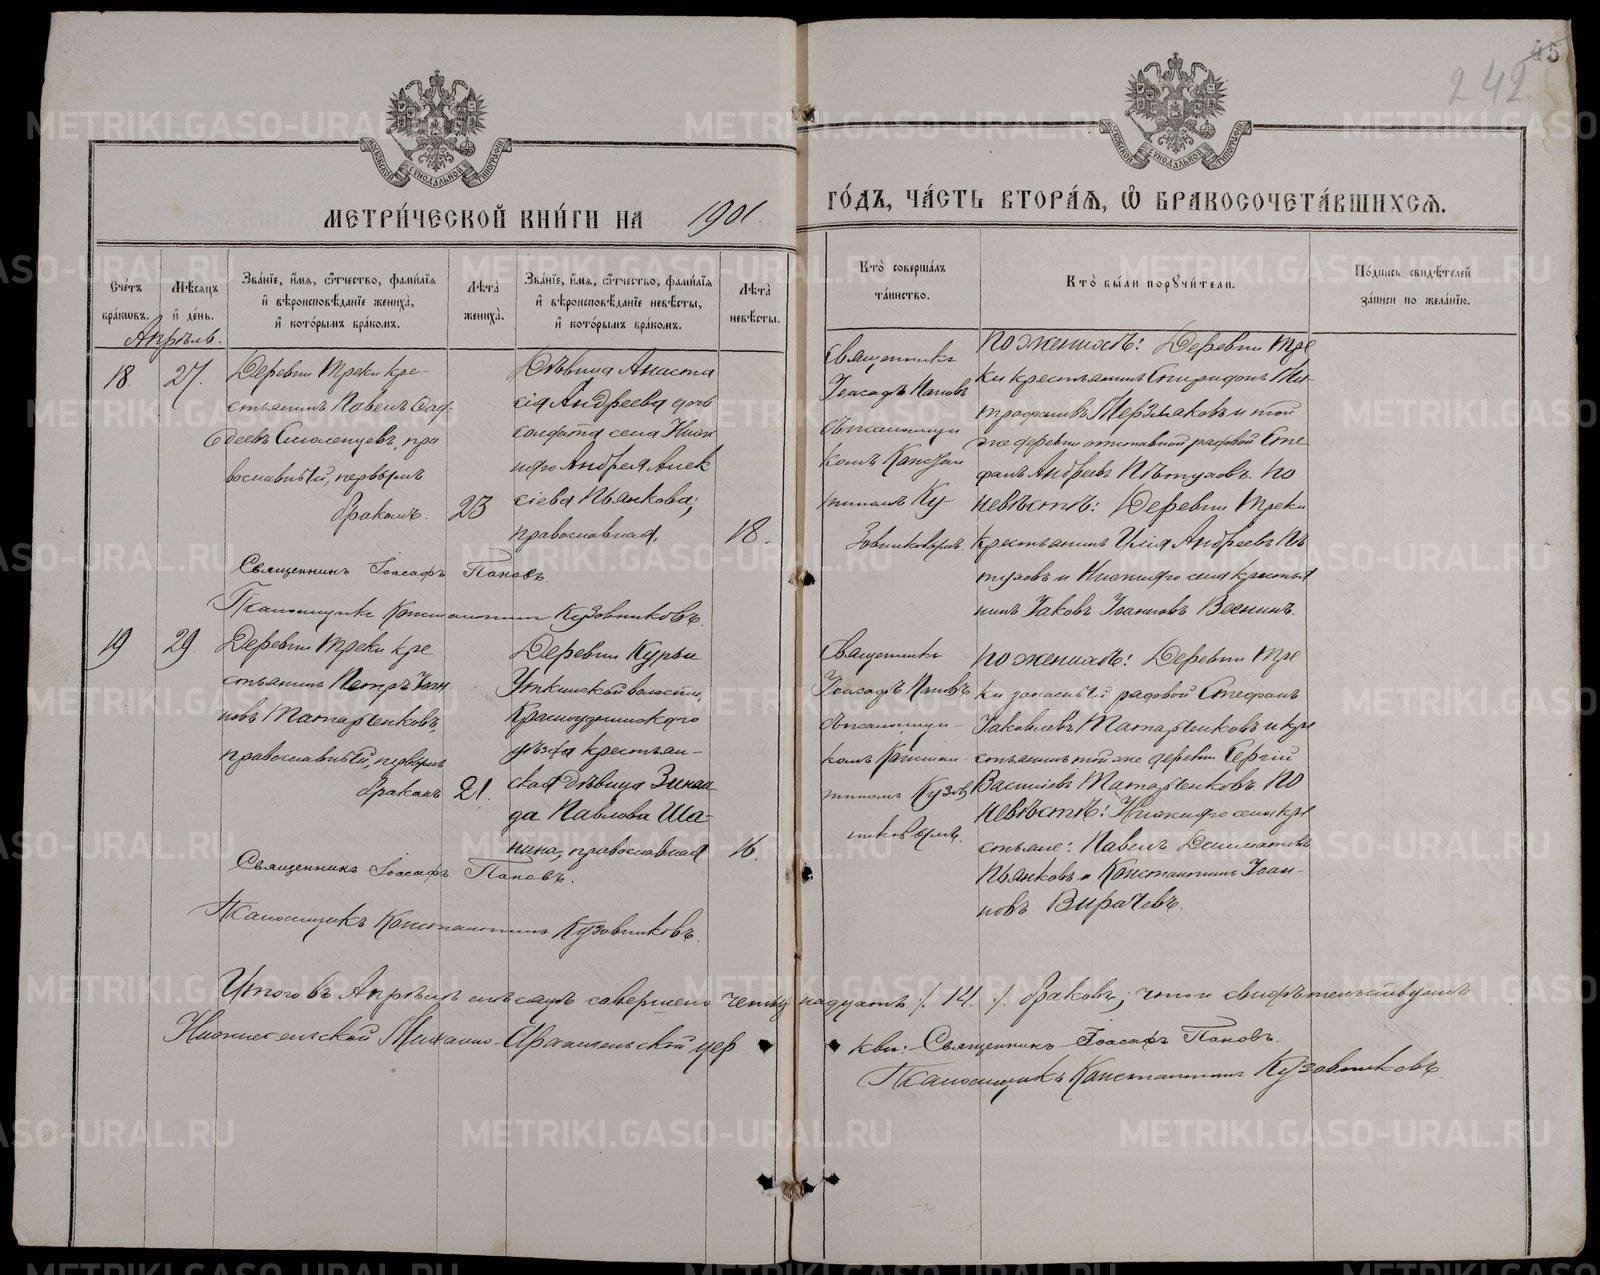 45
242
МЕТРИ́ЧЕСКОЙ КНИ́ГИ НА 1901.
ГО́ДЪ, ЧА́СТЬ ВТОРА́Я, Ѽ БРАКОСОЧЕТА́ВШИХСЯ.
Сче́тъ бра́кѡвъ.
Мѣ́сяцъ и҆ де́нь.
Зва́нїе, и҆́мя, ѻ҆́тчество, фами́лїя
и҆ вѣроисповѣ́данїе жениха̀,
и҆ кото́рымъ бра́комъ.
Лѣ́та̀ жениха̀.
Зва́нїе, и҆́мя, ѻ҆́тчество, фами́лїя
и҆ вѣроисповѣ́данїе невѣ́сты,
и҆ кото́рымъ бра́комъ.
Лѣ́та̀ невѣ́сты.
Кто̀ соверша́лъ
та́инство.
Кто̀ бы́ли порꙋчи́тели.
По́дпись свидѣ́телей
за́писи по жела́нїю.
Апрѣль.
18.
27.
Деревни Треки кре-
стьянинъ Павелъ Фад-
деевъ Смоленцевъ, пра
вославный, первымъ
бракомъ.
23
Дѣвица Анаста
сія Андреева дочь
солдата села Нижн
яго Андрея Алек
сіева Пьянкова,
православная,
18.
Священникъ
Іоасафъ Пановъ
съ псаломщи
комъ Констан
тиномъ Ку
зовниковымъ.
По женихѣ: Деревни Тре
ки крестьянинъ Спиридонъ Ми-
трофановъ Мерзляковъ и той
же деревни отставной рядовой Сте
фанъ Андреевъ Пѣтуховъ. По
невѣстѣ: Деревни Треки
крестьянинъ Илія Андреевъ Пѣ
туховъ и Нижняго села крестья
нинъ Іаковъ Іоанновъ Веснинъ.
Священникъ Іоасафъ Пановъ.
Псаломщикъ Константинъ Кузовниковъ.
19
29.
Деревни Треки кре
стьянинъ Петръ Іоан
новъ Татарченковъ,
православный, первымъ
бракомъ
21.
Деревни Курьи
Уткинской волости,
Красноуфимскаго
уѣзда крестьян-
ская дѣвица Зинаи
да Павлова Ша-
нина, православная
16.
Священникъ
Іоасафъ Пановъ
съ псаломщи-
комъ Констан-
тиномъ Кузов
никовымъ.
По женихѣ: Деревни Тре
ки запасный рядовой Стефанъ
Іаковлевъ Татарченковъ и кре
стьянинъ той же деревни Сергій
Васильевъ Татарченковъ. По
невѣстѣ: Нижняго села кре
стьяне: Павелъ Далматовъ
Пьянковъ и Константинъ Іоан-
новъ Вирачевъ.
Священникъ Іоасафъ Пановъ.
Псаломщикъ Константинъ Кузовниковъ.
Итого въ Апрѣлѣ мѣсяцѣ совершено четырнадцать /. 14. /. браковъ; что и свидѣтельствуемъ
Нижнесельской Михаило-Архангельской церкви: Священникъ Іоасафъ Пановъ.
Псаломщикъ Константинъ Кузовниковъ.
METRIKI.GASO-URAL.RU